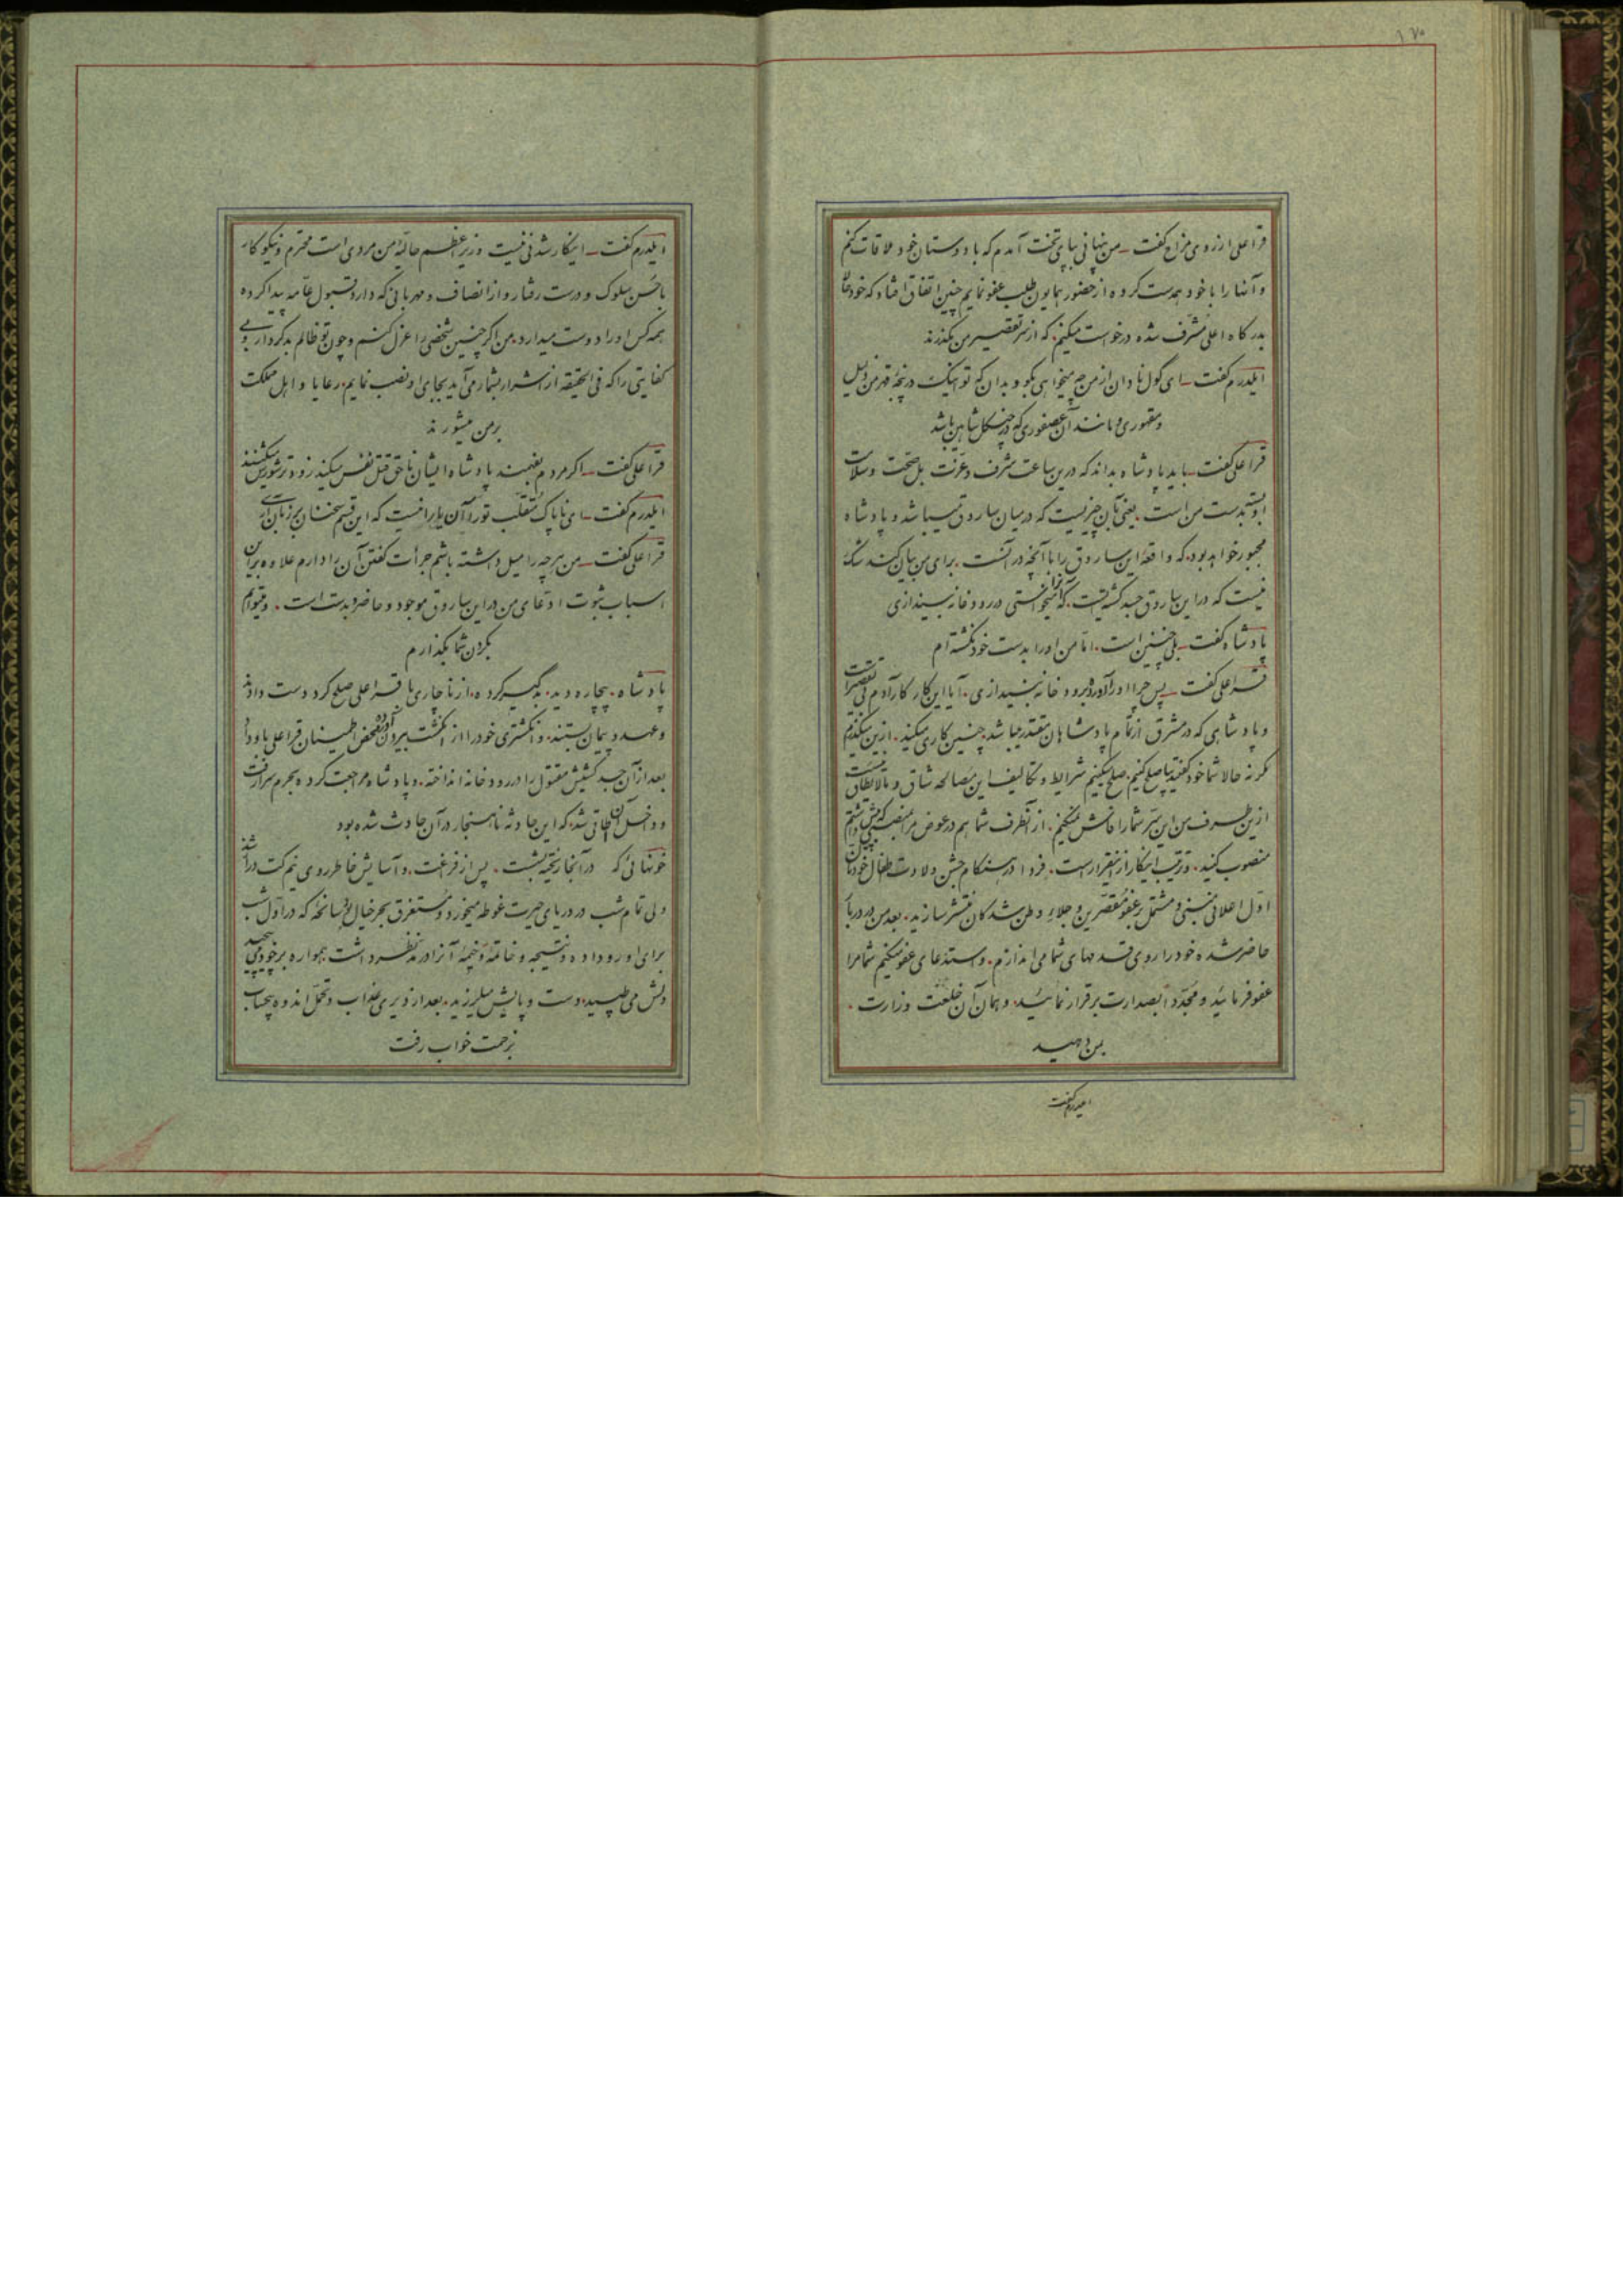 ۱۷۰
قراعلی از روی مزاح گفت ـ من پنهانی بپای تخت آمدم که با دوستان خود ملاقات کنم
و آنها را با خود همدست کرده از حضور همایون طلب عفو نمایم چنین اتفاق افتاد که خودمان
بدرگاه اعلی مشرف شده درخواست میکنیم. که از سر تقصیر من بگذرند
ایلدرم گفت ـ ای گول نادان از من چه میخواهی بگو و بدان که تو اینک در پنجهٔ قهر من ذلیل
و مقهوری و مانند آن عصفوری که در چنگل شاهین باشد
قراعلی گفت ـ باید پادشاه بداند که درین ساعت شرف و عزت بل صحت و سلامت
او بسته بدست من است. یعنی بآن چیزیست که در میان ساروق میباشد و پادشاه
مجبور خواهد بود. که واقعهٔ این ساروق را با آنچه در آنست. برای من بیان کند شک
نیست که در این ساروق جسد کشته‌ایست. که آنرا میخواستی در رودخانه بیندازی
پادشاه گفت ـ بلی چنین است. اما من او را بدست خود نکشته‌ام
قراعلی گفت ـ پس چرا او را آورده برودخانه میندازی. آیا این کار کار آدم بی تقصیر است
و پادشاهی که در مشرق از تمام پادشاهان مقتدر میباشد. چنین کاری میکند. ازین بگذریم
گر نه حالا شما خود گفتید بیا صلح کنیم. صلح میکنیم شرایط و تکالیف این مصالحه شاق و مالایطاق نیست
ازین طرف من این سر شما را فاش نمیکنم. از آنطرف شما هم در عوض مرا بمنصبی که پیش داشتم
منصوب کنید. و ترتیب اینکار از اینقرار است. فردا در هنگام جشن ولادت طفال خودتان
اول اعلانی مبنی و مشتمل بر عفو مقصرین و جلاء وطن شدگان منتشر سازید. بعد من در دربار
حاضر شده خود را روی قدمهای شما می اندازم. و استدعای عفو میکنم شما مرا
عفو فرمائید و مجدداً بصدارت برقرار نمائید. و همان آن خلعت وزارت.
بمن دهید
ایلدرم گفت
ایلدرم گفت ـ اینکار شدنی نیست وزیر اعظم حالیهٔ من مردی است محترم و نیکوکار
با حسن سلوک و درست رفتار و از انصاف و مهربانی که دارد قبول عامه پیدا کرده
همه کس او را دوست میدارد. من اگر چنین شخصی را عزل کنم و چون تو ظالم بدکردار و بی
کفایتی را که فی الحقیقه از اشرار بشمار می آید بجای او نصب نمایم. رعایا و اهل مملکت
بر من میشورند
قراعلی گفت ـ اگر مردم بفهمند پادشاه ایشان ناحق قتل نفس میکند زودتر شورش میکنند
ایلدرم گفت ـ ای ناپاک متقلب تو را آن یارا نیست که این قسم سخنان بر زبان آری
قراعلی گفت ـ من هر چه را میل داشته باشم جرأت گفتن آن را دارم علاوه برین
اسباب ثبوت ادعای من در این ساروق موجود و حاضر و بدست است. و میتوانم
بگردن شما بگذارم
پادشاه. بیچاره دید. گیر کرده. از ناچاری با قراعلی صلح کرد دست دادند
و عهد و پیمان بستند. و انگشتری خود را از انگشت بیرون آورده محض اطمینان قراعلی باو داد
بعد از آن جسد کشیش مقتول را در رودخانه انداخته. و پادشاه مراجعت کرده بحرم سرا رفت
و داخل آن اطاقی شد. که این حادثه ناهنجار در آن حادث شده بود
خونهائی که در آنجا ریخته بشست. پس از فراغت. و آسایش خاطر روی نیم کت دراز شد
ولی تمام شب در دریای حیرت غوطه میخورد و مستغرق بحر خیال بود. سانحهٔ که در اول شب
برای او رو داده و نتیجه و خاتمهٔ وخیمهٔ آنرا در مد نظر داشت همواره بر خود می‌پیچید
دلش می طپید. دست و پایش میلرزید. بعد از دیری عذاب و تحمل اندوه بیحساب
بزحمت خواب رفت